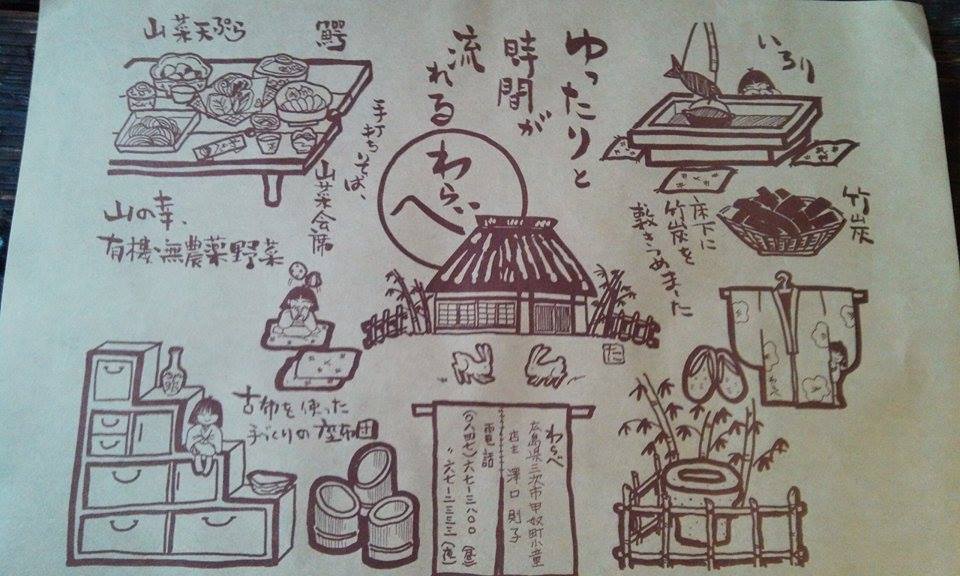 いろり
竹炭
床下に
竹炭を
敷きつめました
ゆったりと
時間が
流れる
わらべ
手打ちそば、
山菜会席
鰐
山菜天ぷら
山の幸、
有機・無農薬野菜
古布を使った
手づくりの座布団
た
わらべ
広島県三次市甲奴町小童
店主 澤口則子
電話
(〇八四七)六七-三八〇〇(昼)
〃 六七-二三三三(夜)